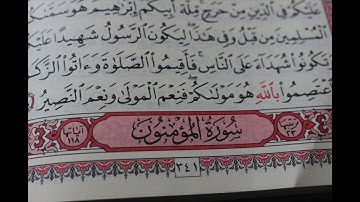 عَلَيْكُمْ فِي ٱلدِّينِ مِنْ حَرَجٍ مِّلَّةَ أَبِيكُمْ إِبْرَٰهِيمَ هُوَ سَمَّىٰكُمُ
ٱلْمُسْلِمِينَ مِن قَبْلُ وَفِي هَٰذَا لِيَكُونَ ٱلرَّسُولُ شَهِيدًا عَلَيْكُمْ
وَتَكُونُوا۟ شُهَدَآءَ عَلَى ٱلنَّاسِ فَأَقِيمُوا۟ ٱلصَّلَوٰةَ وَءَاتُوا۟ ٱلزَّكَوٰةَ
وَٱعْتَصِمُوا۟ بِٱللَّهِ هُوَ مَوْلَىٰكُمْ فَنِعْمَ ٱلْمَوْلَىٰ وَنِعْمَ ٱلنَّصِيرُ
سُورَةُ المُؤْمِنُونَ
آياتها ١١٨
٣٤١